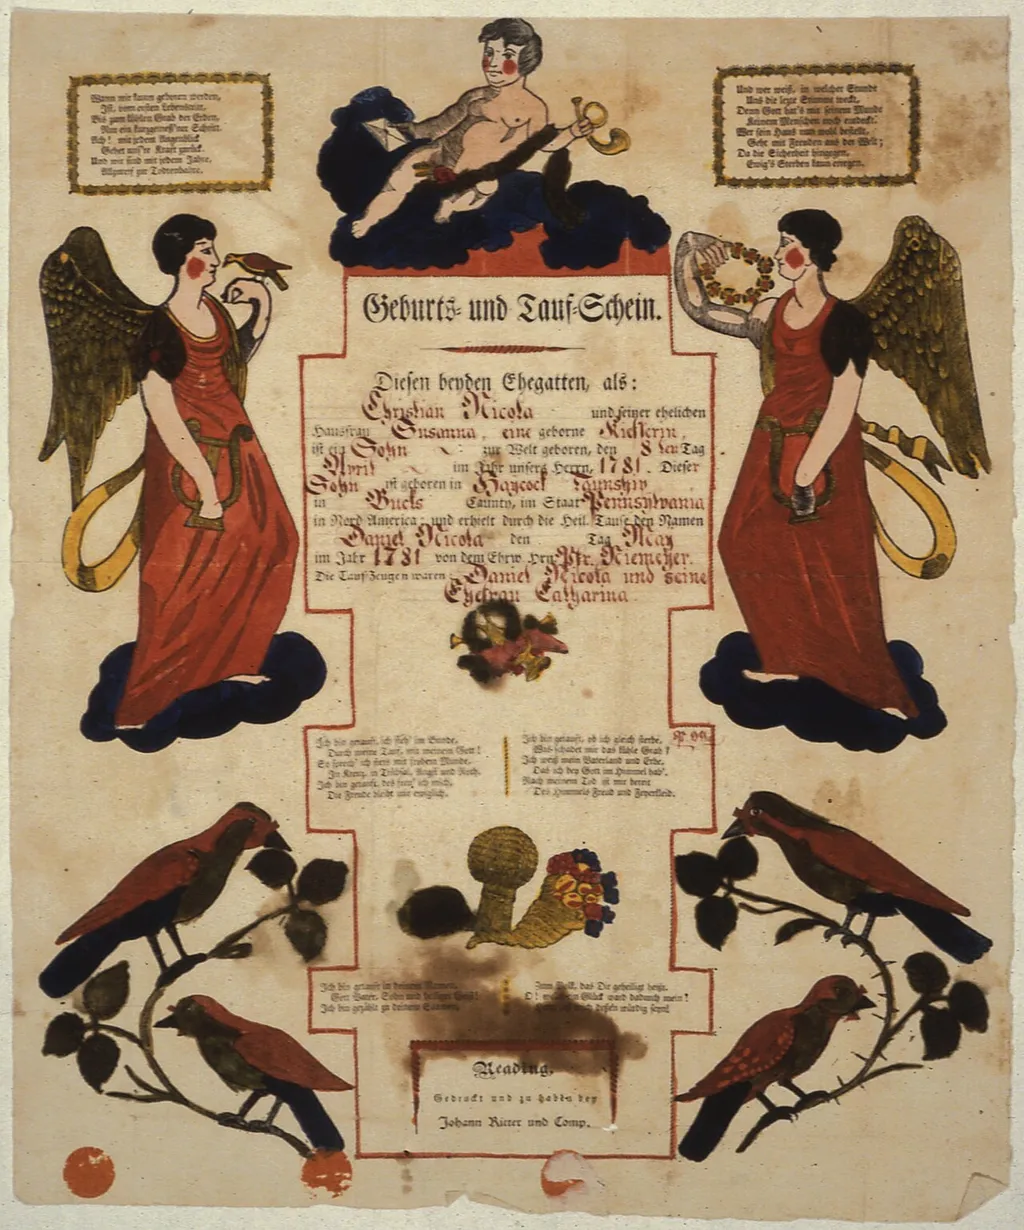 Wann wir kaum geboren werden,
Ist vom ersten Lebenstritt,
Bis zum kühlen Grab der Erden,
Nur ein kurzgemeß'ner Schritt.
Ach! mit jedem Augenblick
Gehet uns're Kraft zurück,
Und wir sind mit jedem Jahre,
Allzureif zur Todtenbahre.
Und wer weiß, in welcher Stunde
Uns die lezte Stimme weckt,
Denn Gott hat's mit seinem Munde
Keinem Menschen noch entdeckt.
Wer sein Haus nun wohl bestellt,
Geht mit Freuden aus der Welt;
Da die Sicherheit hingegen,
Ewig's Sterben kann erregen.
Geburts- und Tauf-Schein.
Diesen beyden Ehegatten, als:
Christian Nicola und seiner ehelichen
Hausfrau Susanna, eine geborne
ist ein Sohn zur Welt geboren, den 8ten Tag
April im Jahr unsers Herrn, 1781. Dieser
Sohn ist geboren in Haycock Taunship
in Bucks Caunty, im Staat Pennsylvania
in Nord America; und erhielt durch die Heil. Taufe den Namen
Daniel Nicola den Tag May
im Jahr 1781 von dem Ehrw. Hrn. Pfr. Niemeyer.
Die Tauf-Zeugen waren Daniel Nicola und seine
Ehefrau Catharina
Ich bin getauft, ich steh' im Bunde,
Durch meine Tauf, mit meinem Gott!
So sprech' ich stets mit frohem Munde,
In Kreuz, in Trübsal, Angst und Noth.
Ich bin getauft, deß freu' ich mich,
Die Freude bleibt mir ewiglich.
Ich bin getauft, ob ich gleich sterbe,
Was schadet mir das kühle Grab?
Ich weiß mein Vaterland und Erbe,
Das ich bey Gott im Himmel hab'.
Nach meinem Tod ist mir bereit
Des Himmels Freud und Feyerkleid.
Ich bin getauft in deinem Namen,
Gott Vater, Sohn und heiliger Geist!
Ich bin gezählt zu deinem Saamen,
Zum Volk, das Dir geheiligt heißt.
O! welch ein Glück ward dadurch mein!
würdig seyn!
Reading,
Gedruckt und zu haben bey
Johann Ritter und Comp.